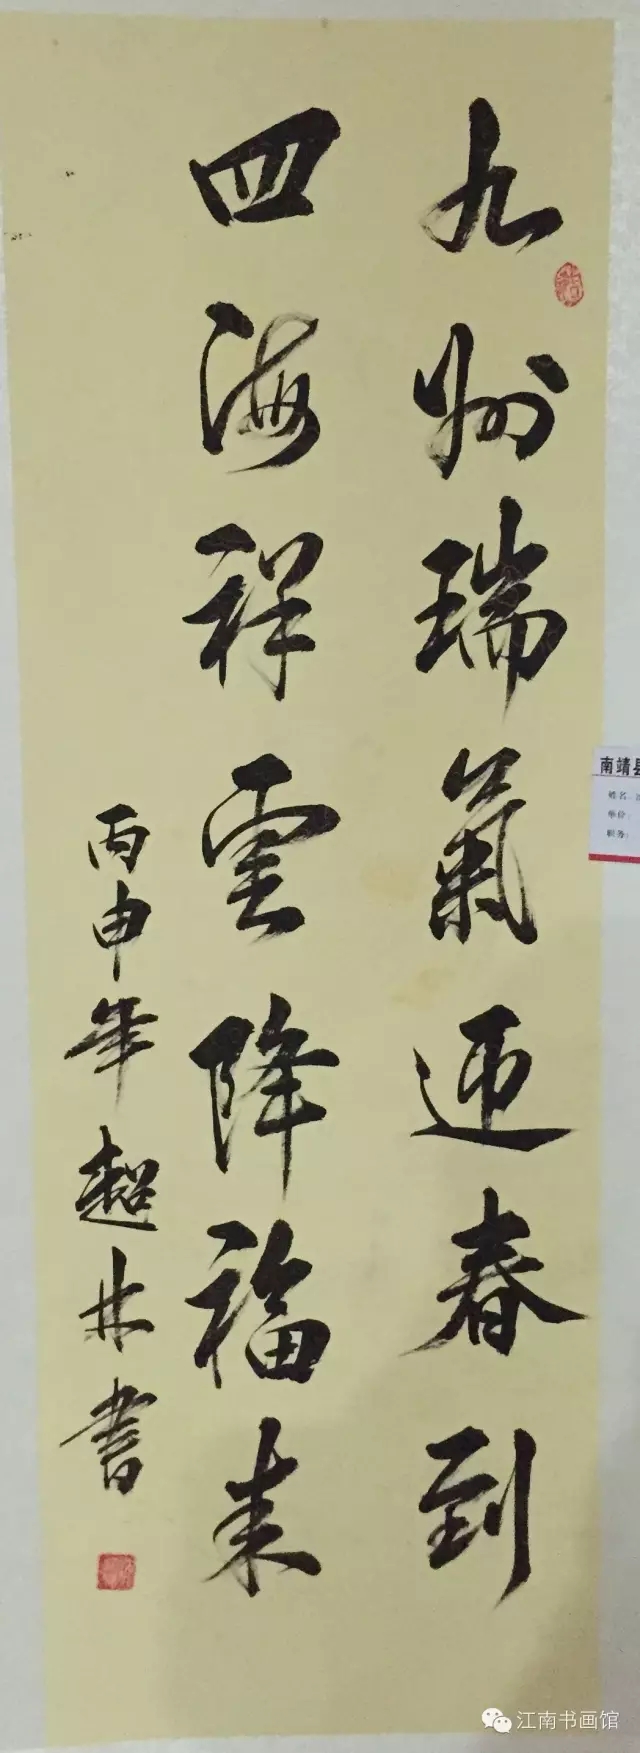 九州瑞氣迎春到
四海祥雲降福来
丙申年超林書
南靖县
姓名：
单价：
职务：
江南书画馆